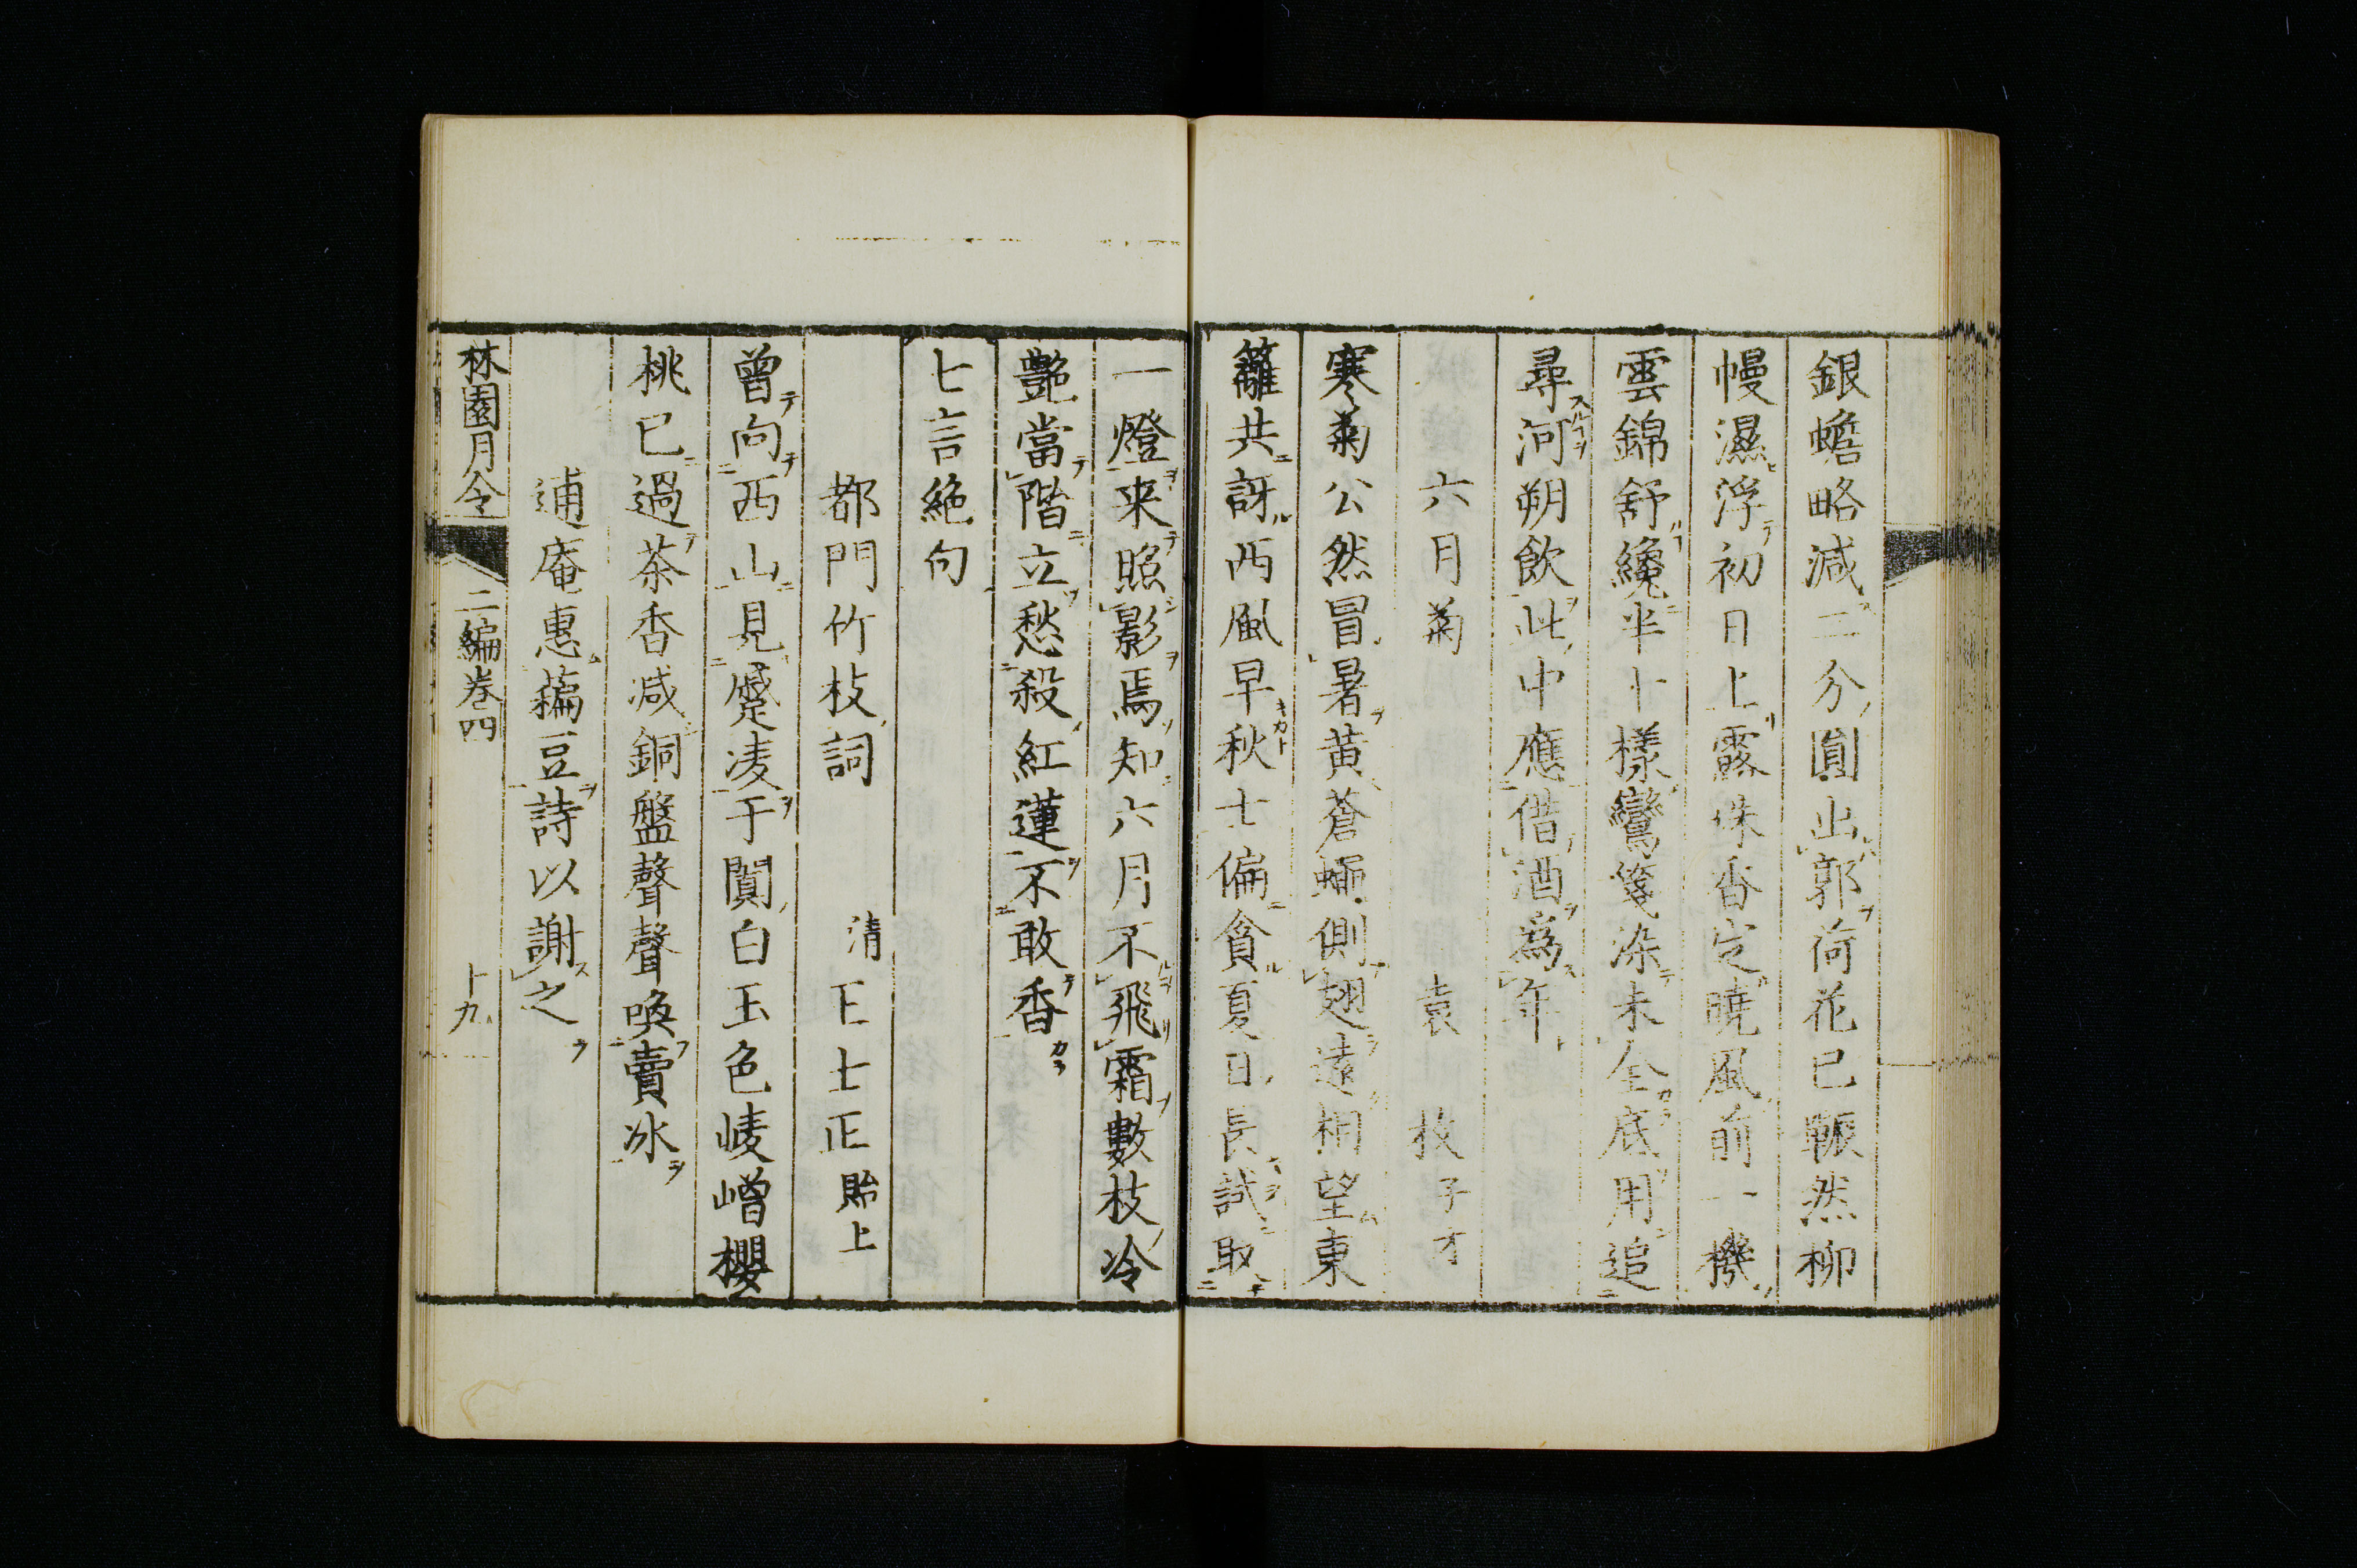 銀蟾略減二分圓出郭荷花已輾然柳
幔濕浮初日上露珠香定曉風前一機
雲錦舒纔半十樣鸞箋染未全底用追
尋河朔飲此中應借酒爲年
六月菊 袁枚子才
寒菊公然冒暑黄蒼蠅側翅遠相望東
籬共訝西風早秋士偏貪夏日長試取
一燈来照影焉知六月不飛霜數枝冷
艷當階立愁殺紅蓮不敢香
七言絶句
都門竹枝詞 清 王士正貽上
曾向西山見蹙凌于闐白玉色崚嶒櫻
桃已過茶香減銅盤聲聲喚賣冰
逋庵惠藊豆詩以謝之
林園月令 二編卷四 十九